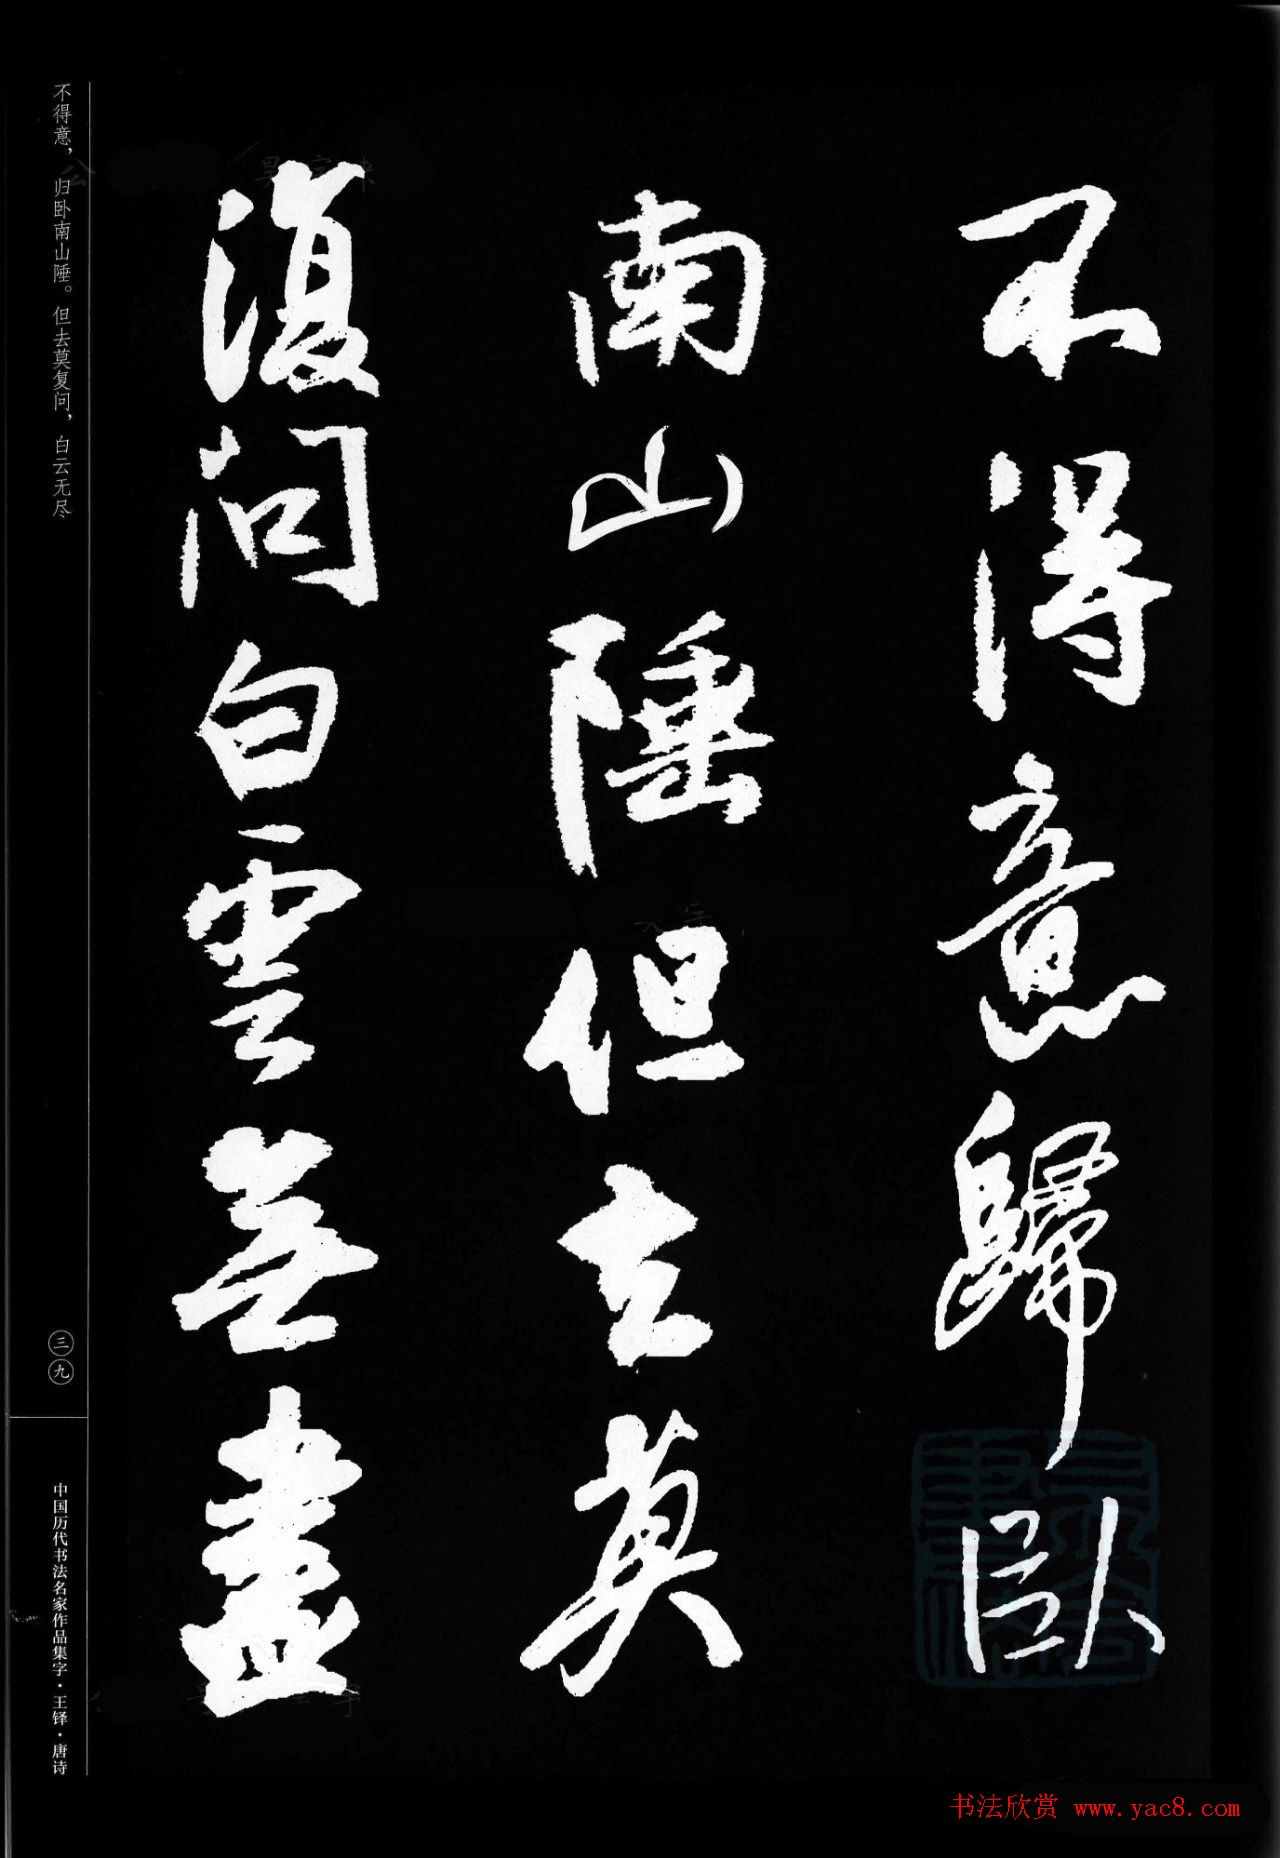 不得意歸卧
南山陲但去莫
復問白雲無盡
不得意，归卧南山陲。但去莫复问，白云无尽
三九
中国历代书法名家作品集字·王铎·唐诗
书法欣赏 www.yac8.com